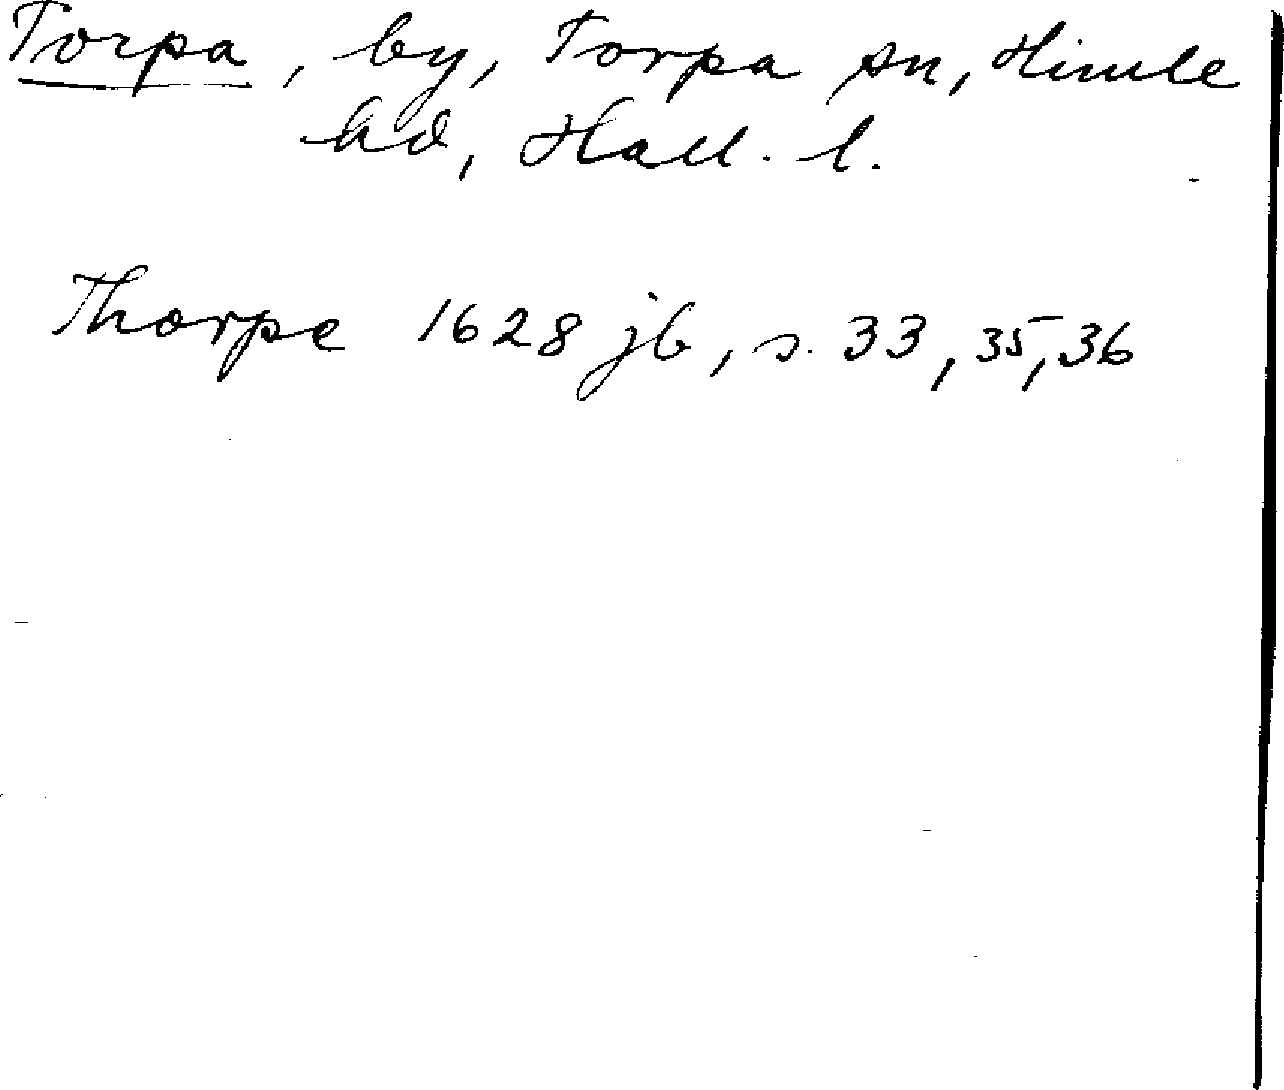 Torpa, by, Torpa sn, Himle
hd, Hall. l.
Thorpe 1628 jb, s. 33, 35, 36